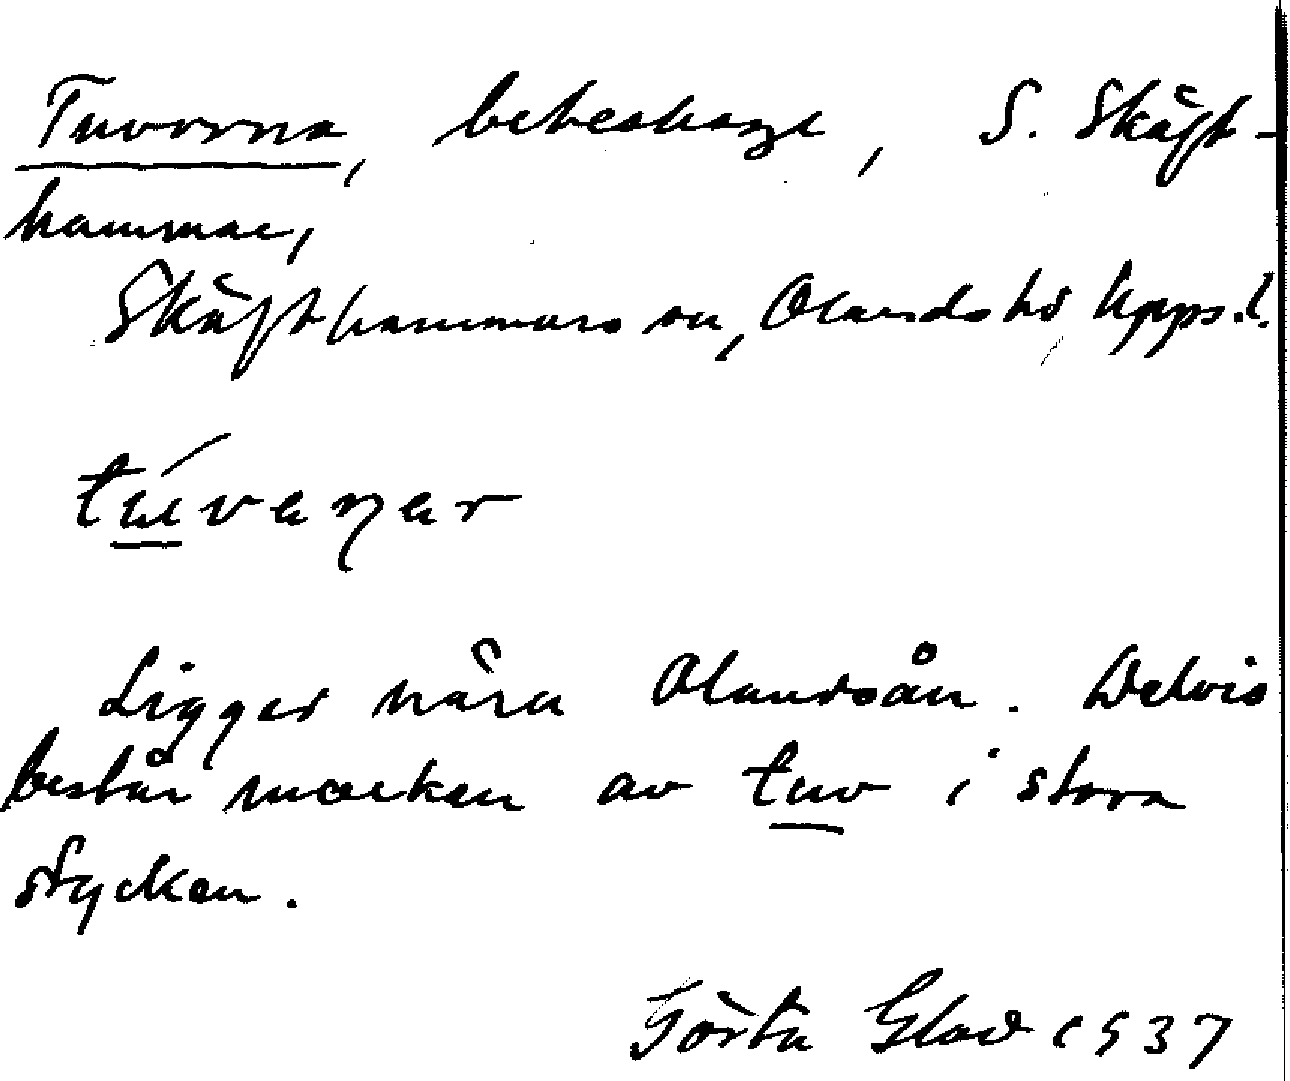 Tuvorna, beteshage, S. Skäft-
hammar,
Skäfthammars sn, Olands hd Upps.l.
túvaŋar
Ligger nära Olandsån. Delvis
består marken av tuv i stora
stycken.
Gösta Glad 1937